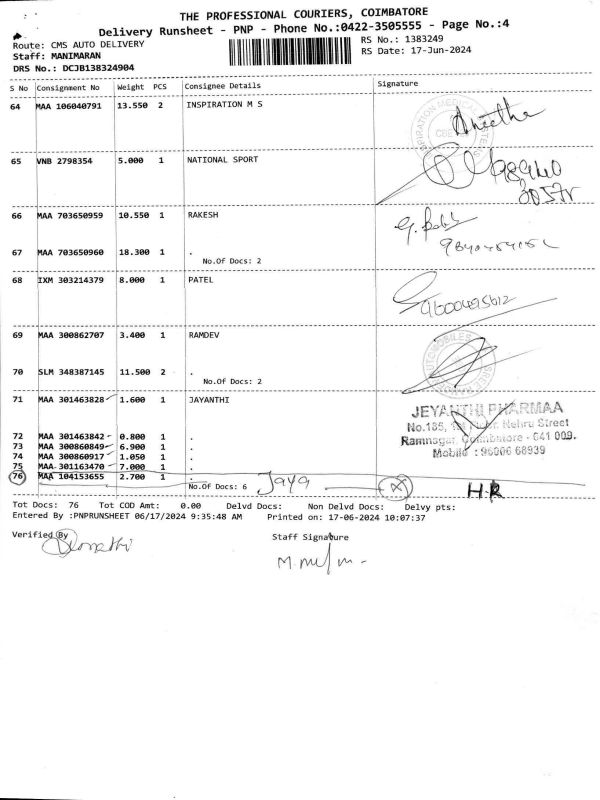 THE PROFESSIONAL COURIERS, COIMBATORE
Delivery Runsheet - PNP - Phone No.:0422-3505555 - Page No.:4
Route: CMS AUTO DELIVERY
Staff: MANIMARAN
DRS No.: DCJB138324904
RS No.: 1383249
RS Date: 17-Jun-2024
S No Consignment No Weight PCS Consignee Details Signature
64 MAA 106040791 13.550 2 INSPIRATION M S
65 VNB 2798354 5.000 1 NATIONAL SPORT
66 MAA 703650959 10.550 1 RAKESH
67 MAA 703650960 18.300 1 .
No.Of Docs: 2
68 IXM 303214379 8.000 1 PATEL
9600495612
69 MAA 300862707 3.400 1 RAMDEV
70 SLM 348387145 11.500 2 .
No.Of Docs: 2
71 MAA 301463828 1.600 1 JAYANTHI
JEYANTHI PHARMAA
No.185, Nehru Street
Ramnagar, Coimbatore - 641 009.
Mobile : 96006 68939
72 MAA 301463842 0.800 1 .
73 MAA 300860849 6.900 1 .
74 MAA 300860917 1.050 1 .
75 MAA 301163470 7.000 1 .
76 MAA 104153655 2.700 1 .
No.Of Docs: 6 Jaya H.R
Tot Docs: 76 Tot COD Amt: 0.00 Delvd Docs: Non Delvd Docs: Delvy pts:
Entered By :PNPRUNSHEET 06/17/2024 9:35:48 AM Printed on: 17-06-2024 10:07:37
Verified By
Staff Signature